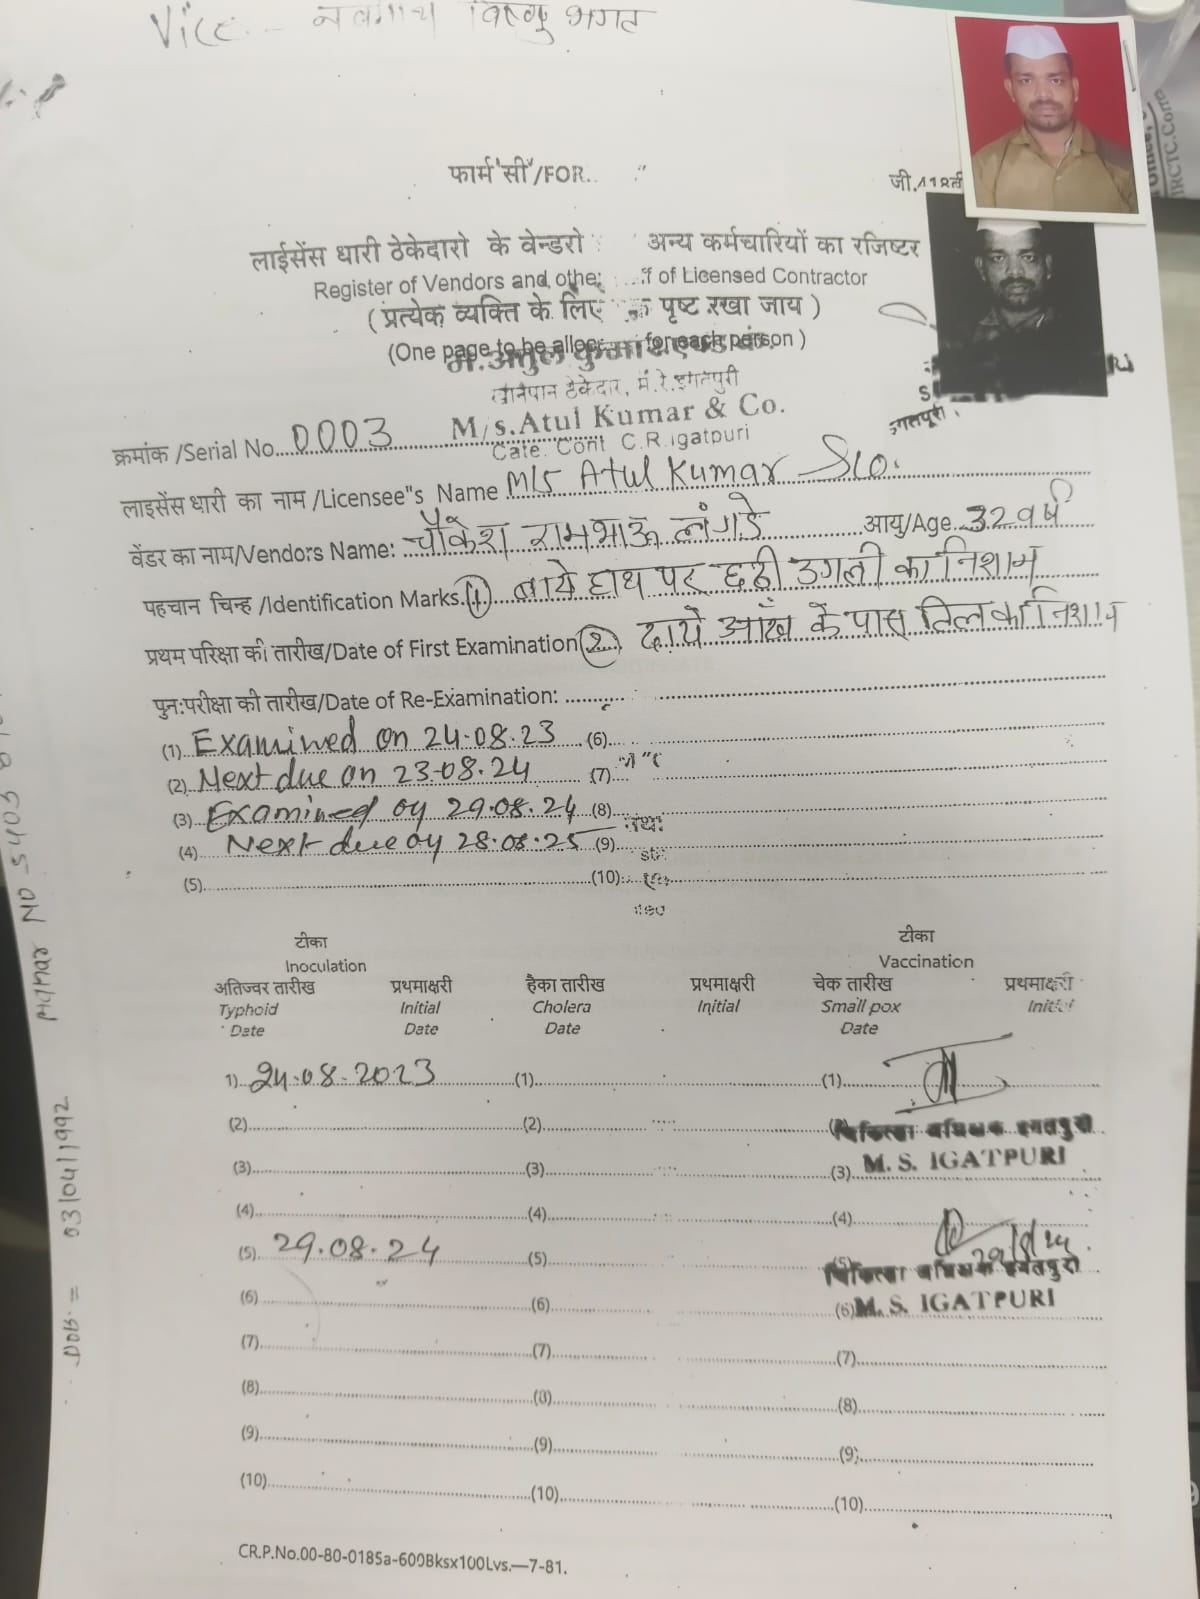 Vice - नवनाथ विष्णु भगत
फार्म 'सी'/FOR..
लाईसेंस धारी ठेकेदारो के वेन्डरो अन्य कर्मचारियों का रजिष्टर
Register of Vendors and othe f of Licensed Contractor
(प्रत्येक व्यक्ति के लिए पृष्ट रखा जाय)
(One page to be alloc for each person)
मे. अतुल कुमार एण्ड कं.
खानपान ठेकेदार, म.रे.इगतपुरी
M/s.Atul Kumar & Co.
Cate. Cont C.R.Igatpuri
इगतपुरी.
क्रमांक /Serial No....0003
लाइसेंस धारी का नाम /Licensee"s Name M/s Atul Kumar &co.
वेंडर का नाम/Vendors Name: रामभाऊ लंगडे आयु/Age. 32 वर्ष
पहचान चिन्ह /Identification Marks.(1) बाये हाथ पर छठी उगली का निशान
प्रथम परिक्षा की तारीख/Date of First Examination (2) दाये आँख के पास तिल का निशान
पुन:परीक्षा की तारीख/Date of Re-Examination:
(1) Examined on 24.08.23 (6)
(2) Next due on 23.08.24 (7)
(3) Examined on 29.08.24 (8)
(4) Next due on 28.08.25 (9)
(5) (10)
टीका टीका
Inoculation Vaccination
अतिज्वर तारीख प्रथमाक्षरी हैका तारीख प्रथमाक्षरी चेक तारीख प्रथमाक्षरी
Typhoid Initial Cholera Initial Small pox Initial
Date Date Date Date
1) 24.08.2023 (1) (1)
(2) (2)
चिकित्सा अधिक्षक इगतपुरी
(3) (3) (3) M. S. IGATPURI
(4) (4) (4)
(5) 29.08.24 (5) (5) 29/8/24
चिकित्सा अधिक्षक इगतपुरी
(6) (6) (6) M. S. IGATPURI
(7) (7) (7)
(8) (8) (8)
(9) (9) (9)
(10) (10) (10)
CR.P.No.00-80-0185a-600Bksx100Lvs.—7-81.
DOB = 03/04/1992
IRCTC.Corp